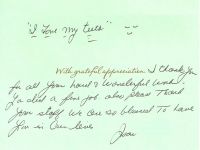 "I Love My teeth"
With grateful appreciation I thank you
for all your hard & wonderful work
You did a fine job also please thank
your staff We are so blessed to have
you in our lives
Joan